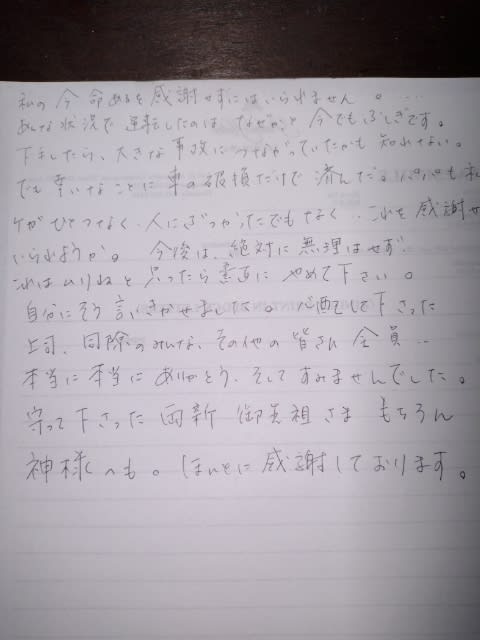 私の今 命あるを感謝せずにはいられません。…
あんな状況で運転したのは なぜかと 今でもふしぎです。
下手したら、大きな事故につながっていたかも 知れない。
でも幸いなことに車の破損だけで済んだ。パパも私
ケがひとつなく、人にぶつかったでもなく‥これを感謝せ
いられようか。 今後は、絶対に無理はせず、
これはムリねと思ったら素直に やめて下さい。
自分にそう言いきかせました。心配して下さった
上司、同 のみんな、その他の皆さん全員‥
本当に本当に ありがとう、そして すみませんでした。
守って下さった 御先祖さま もちろん
神様へも。ほんとに感謝しております。